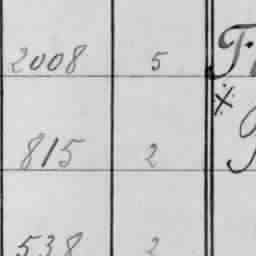 2008 5
815 2
538 2